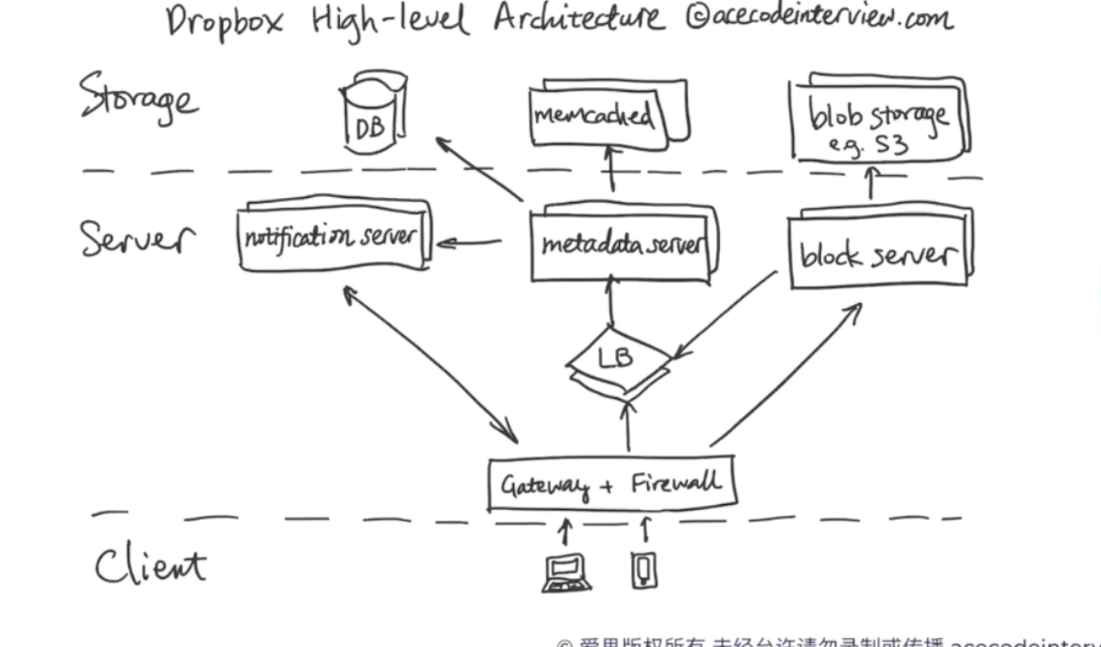 Dropbox High-level Architecture ©acecodeinterview.com
Storage
DB
memcached
blob storage
e.g. S3
Server
notification server
metadata server
block server
LB
Gateway + Firewall
Client
© 爱思版权所有 未经允许请勿录制或传播 acecodeinterv